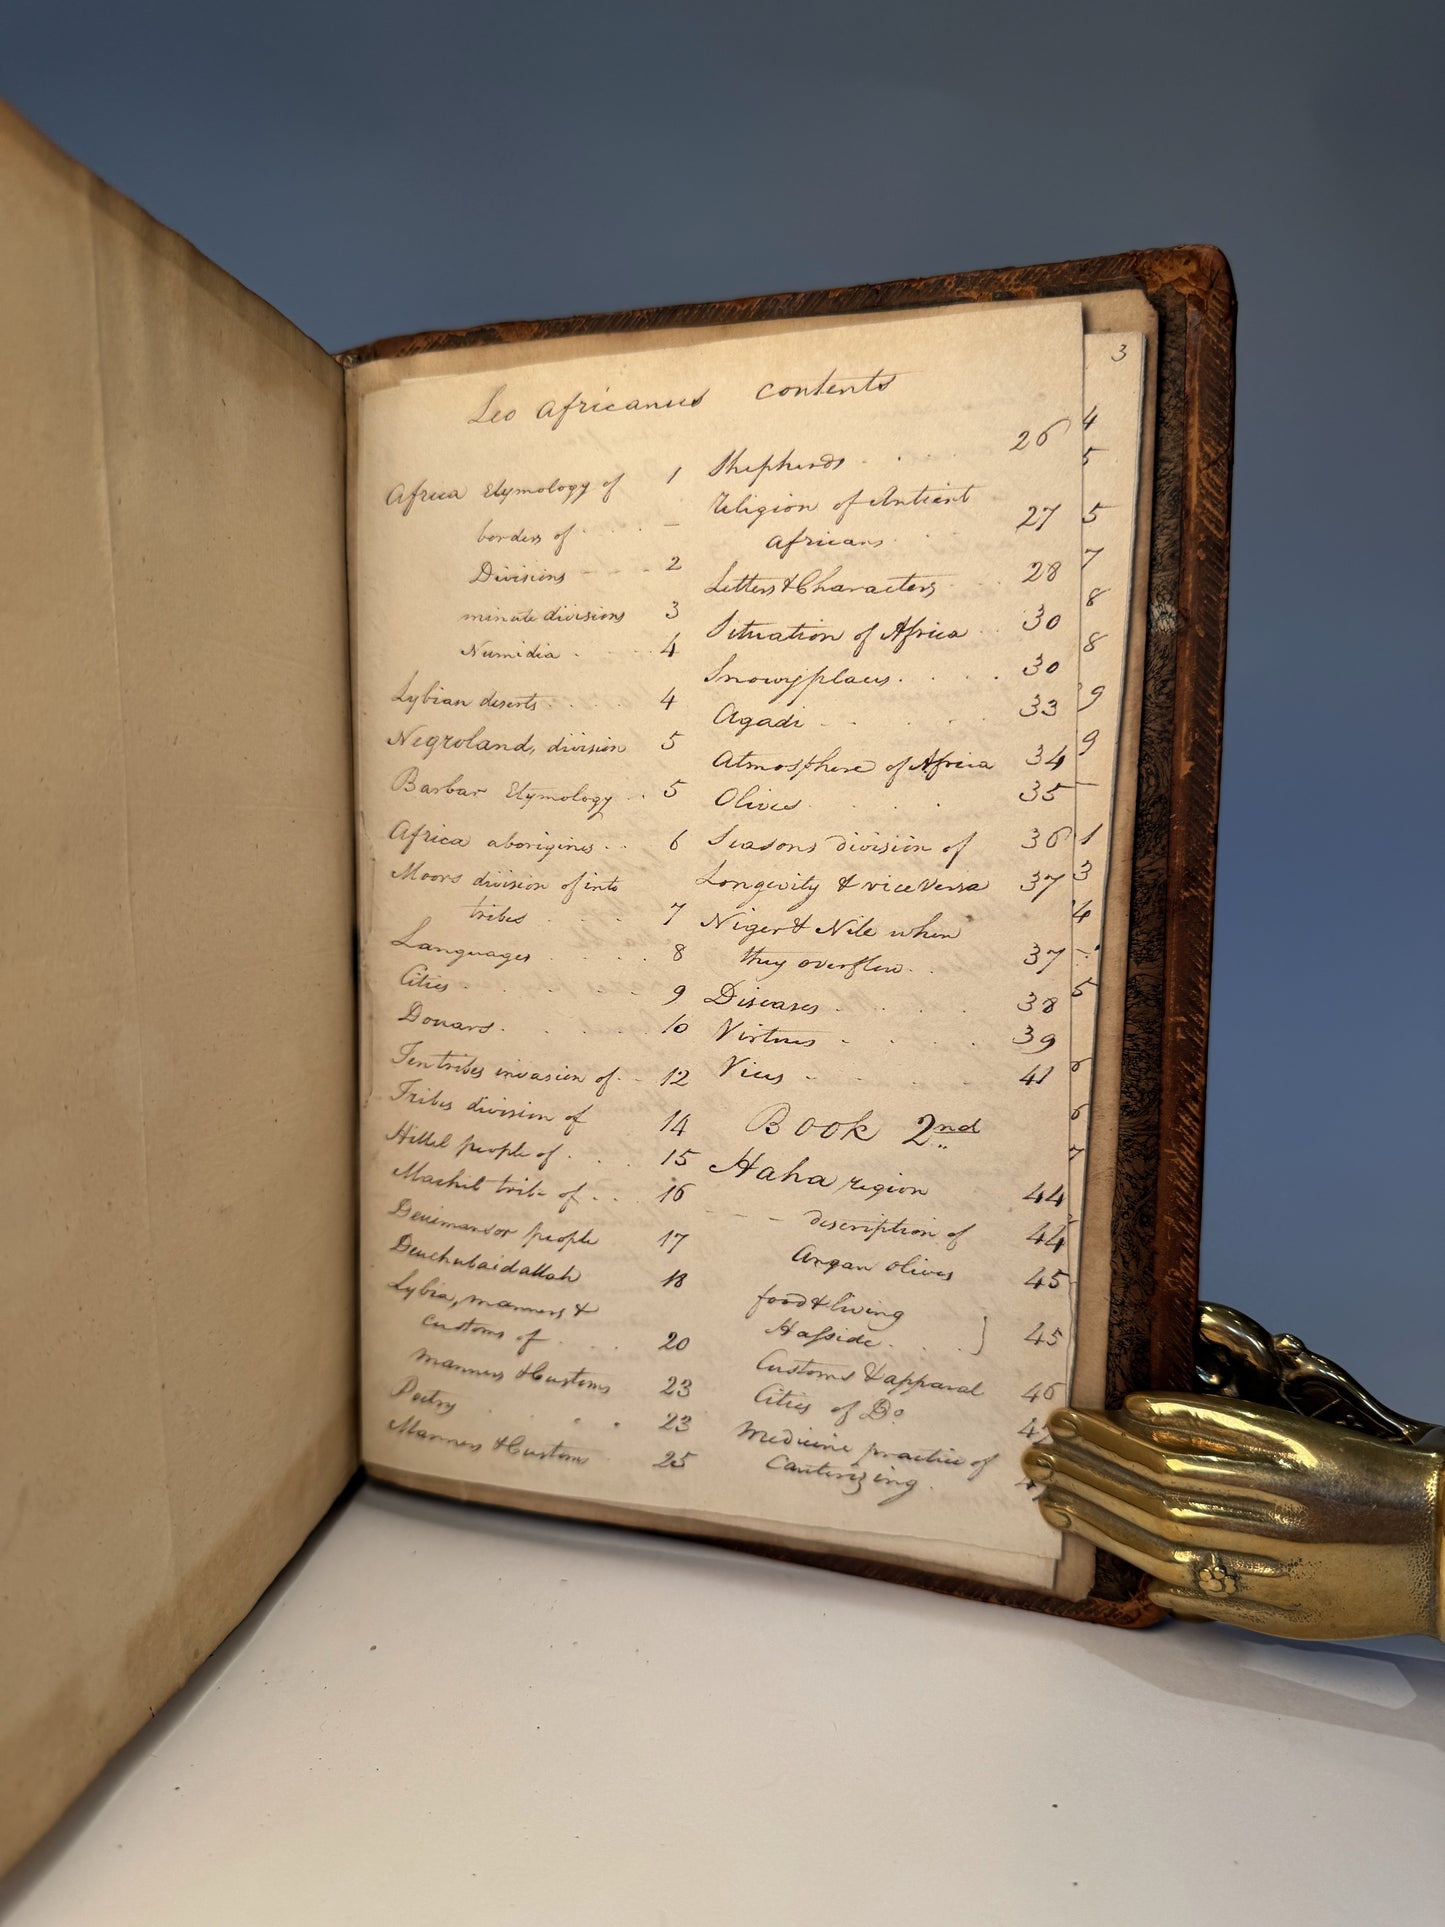 Leo Africanus contents
Africa Etymology of 1
borders of . . . –
Divisions - - - - 2
minute divisions 3
Numidia . . . . 4
Lybian deserts . . . . 4
Negroland, division 5
Barbar Etymology . . 5
Africa aborigines . . 6
Moors division of into
tribes . . . . 7
Languages . . . . 8
Cities . . . . . . 9
Douars . . . . . 10
Ten tribes invasion of . . 12
Tribes division of 14
Hillel people of . . . 15
Machil tribe of . . . 16
Devimansor people 17
Deuchubaidallah 18
Lybia, manners &
customs of . . . . 20
manners & Customs 23
Poetry . . . . 23
Manners & Customs 25
Shepherds . . . 26
Religion of Antient
Africans . . 27
Letters & Characters . . . 28
Situation of Africa . . 30
Snowy places . . . . . 30
Agadi - . . . . 33
Atmosphere of Africa 34
Olives . . . . 35
Seasons division of 36
Longevity & vice Versa 37
Niger & Nile when
they overflow . . 37
Diseases . . . . . 38
Virtues . . . . . 39
Vices - . . . . 41
Book 2nd
Haha region 44
- - - description of 44
Argan olives 45
food & living
Hafside . . . . } 45
Customs & apparal 46
Cities of Do
medicine practice of
Cauterizing .
3
4
5
5
7
8
8
9
9
–
1
3
4
5
6
6
7